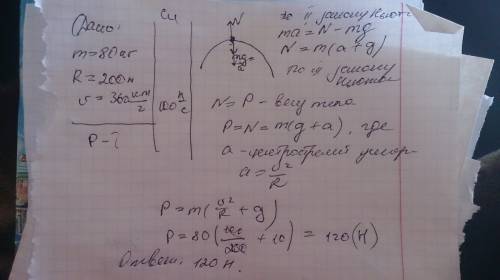 Дано:
m=80кг
R=200м
v=360 км/г
P-?
Си
100 м/с
N
mg
a
по II закону Ньют
ma=N-mg
N=m(a+g)
по III закону Ньютона
N=P - весу тела
P=N=m(g+a), где
a - центростремит ускор
a=v²/R
P=m(v²/R+g)
P=80(100/200+10)=120(Н)
Ответ: 120Н.